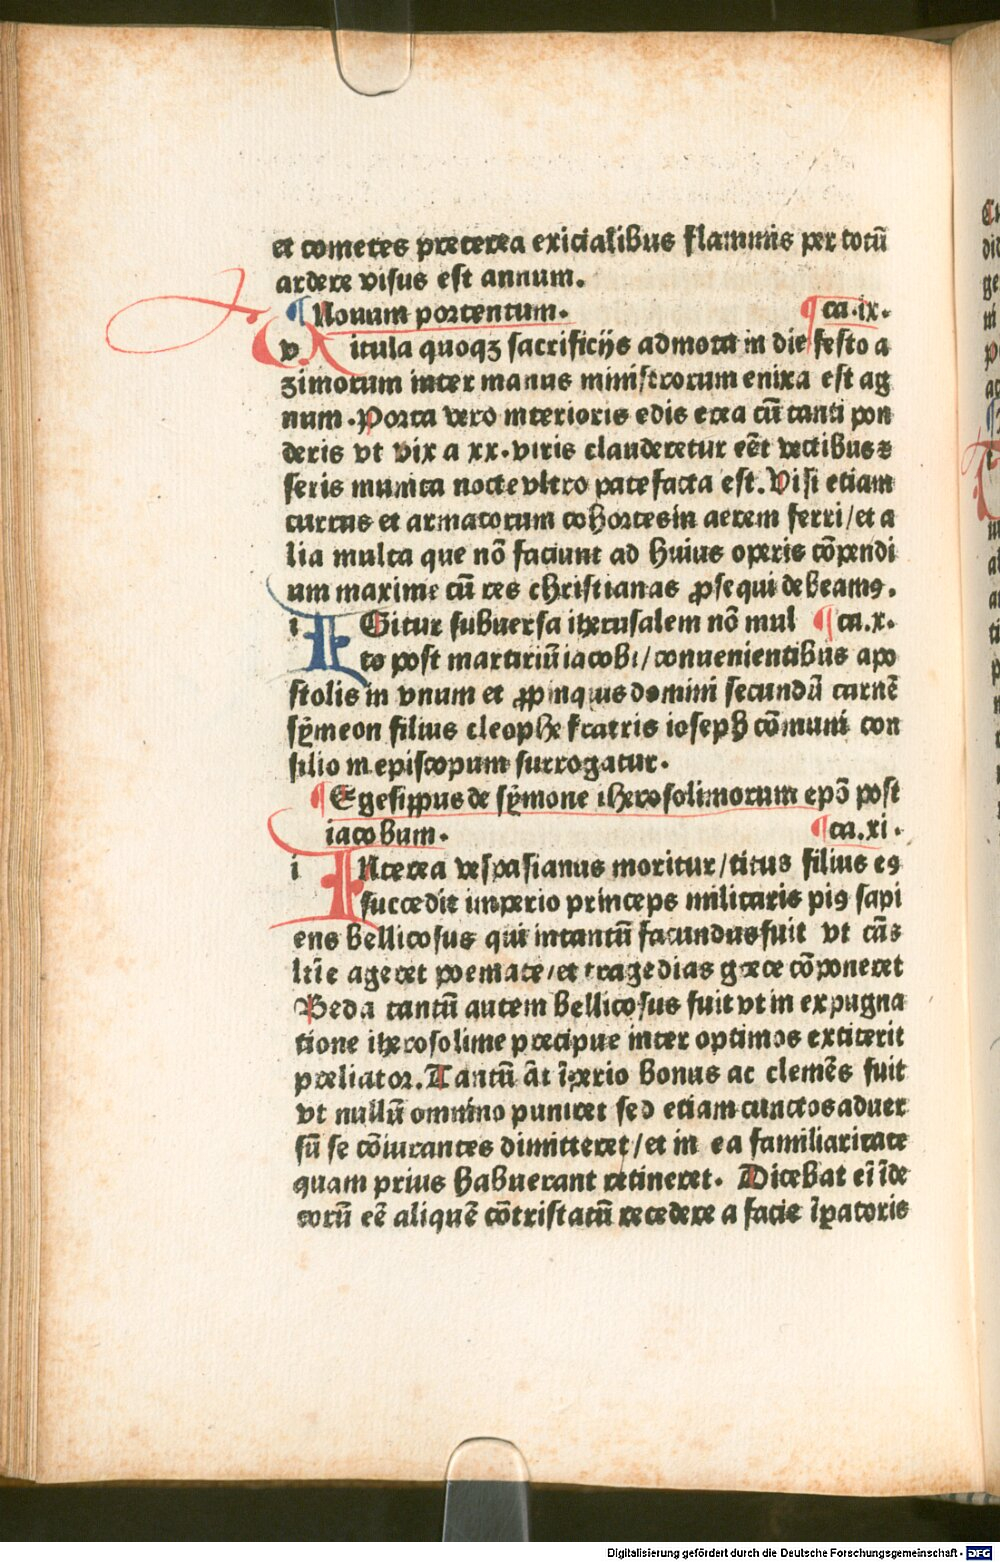 et cometes preterea exicialibus flammis per totū
ardere visus est annum.
¶ Nouum portentum. ¶ ca.ix.
v itula quoqꝫ sacrificijs admota in die festo a
zimorum inter manus ministrorum enixa est ag
num. Porta vero interioris edis erea cū tanti pon
deris vt vix a xx. viris clauderetur eēt vectibus ⁊
seris munita nocte vltro patefacta est. Visi etiam
currus et armatorum cohortes in aerem ferri/et a
lia multa que nō faciunt ad huius operis cōpendi
um maxime cū res christianas ꝓsequi debeamꝰ.
i IGitur subuersa iherusalem nō mul ¶ ca.x.
to post martiriū iacobi/conuenientibus apo
stolis in vnum et ꝓpinquis domini secundū carnē
sẏmeon filius cleophe fratris ioseph cōmuni con
silio in episcopum surrogatur.
¶ Egesippus de sẏmone iherosolimorum epō post
iacobum. ¶ ca.xi.
i INterea vespasianus moritur/titus filius eꝰ
succedit imperio princeps militaris piꝰ sapi
ens bellicosus qui intantū facundus fuit vt cās
ltīe ageret poemate/et tragedias grece cōponeret
Beda tantū autem bellicosus fuit vt in expugna
tione iherosolime precipue inter optimos extiterit
preliator. Tantū āt īperio bonus ac clemēs fuit
vt nullū omnino puniret sed etiam cunctos aduer
sū se cōiurantes dimitteret/et in ea familiaritate
quam prius habuerant retineret. Dicebat eī īde
corū eē aliquē cōtristatū recedere a facie īꝑatoris
Digitalisierung gefördert durch die Deutsche Forschungsgemeinschaft - DFG